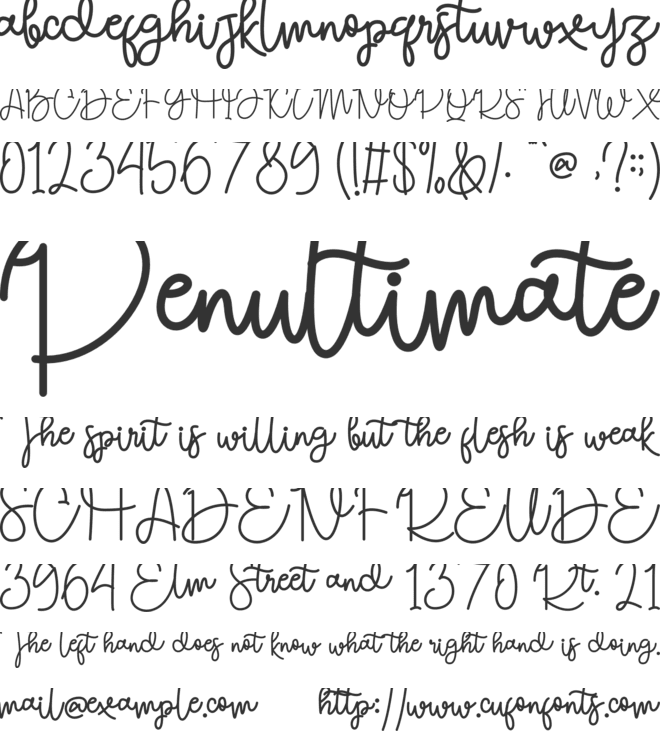 abcdefghijklmnopqrstuvwxyz
ABCDEFGHIJKLMNOPQRSTUVWX
0123456789 (!#$%&/. "@ ,?:;)
Penultimate
The spirit is willing but the flesh is weak
SCHADENFREUDE
3964 Elm Street and 1370 Rt. 21
The left hand does not know what the right hand is doing.
mail@example.com http://www.cufonfonts.com